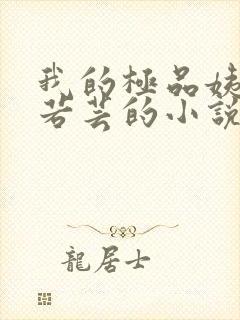 我的極品姨
若芸的小說
龍居士